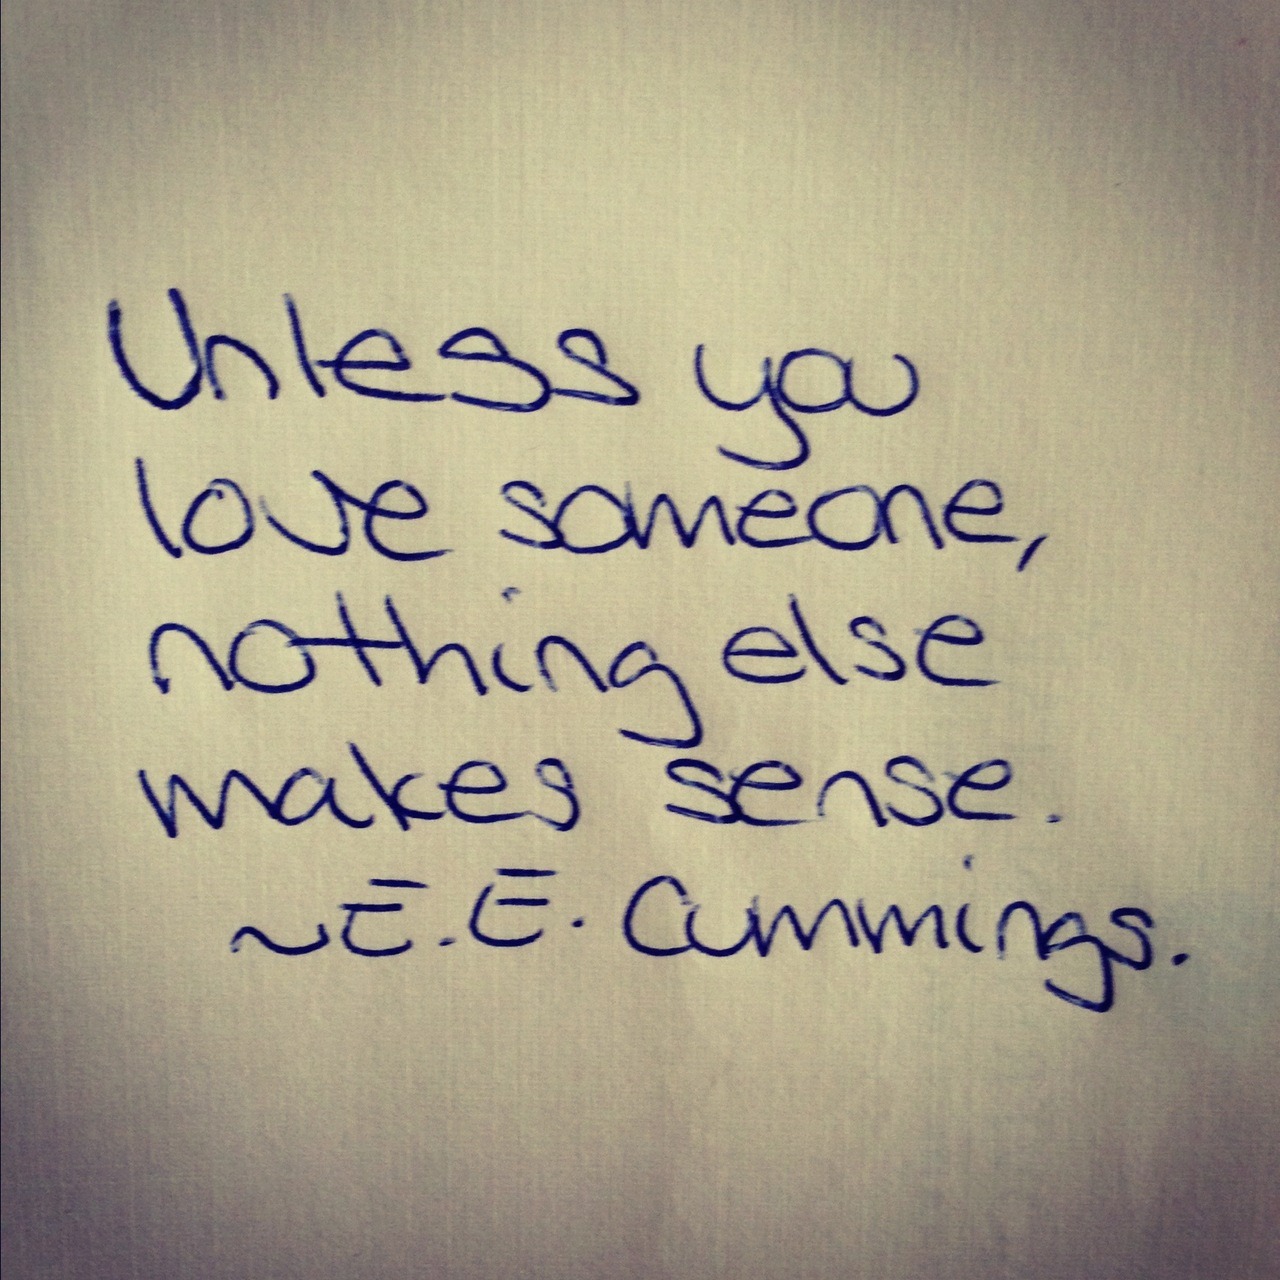 Unless you
love someone,
nothing else
makes sense.
~E.E. Cummings.